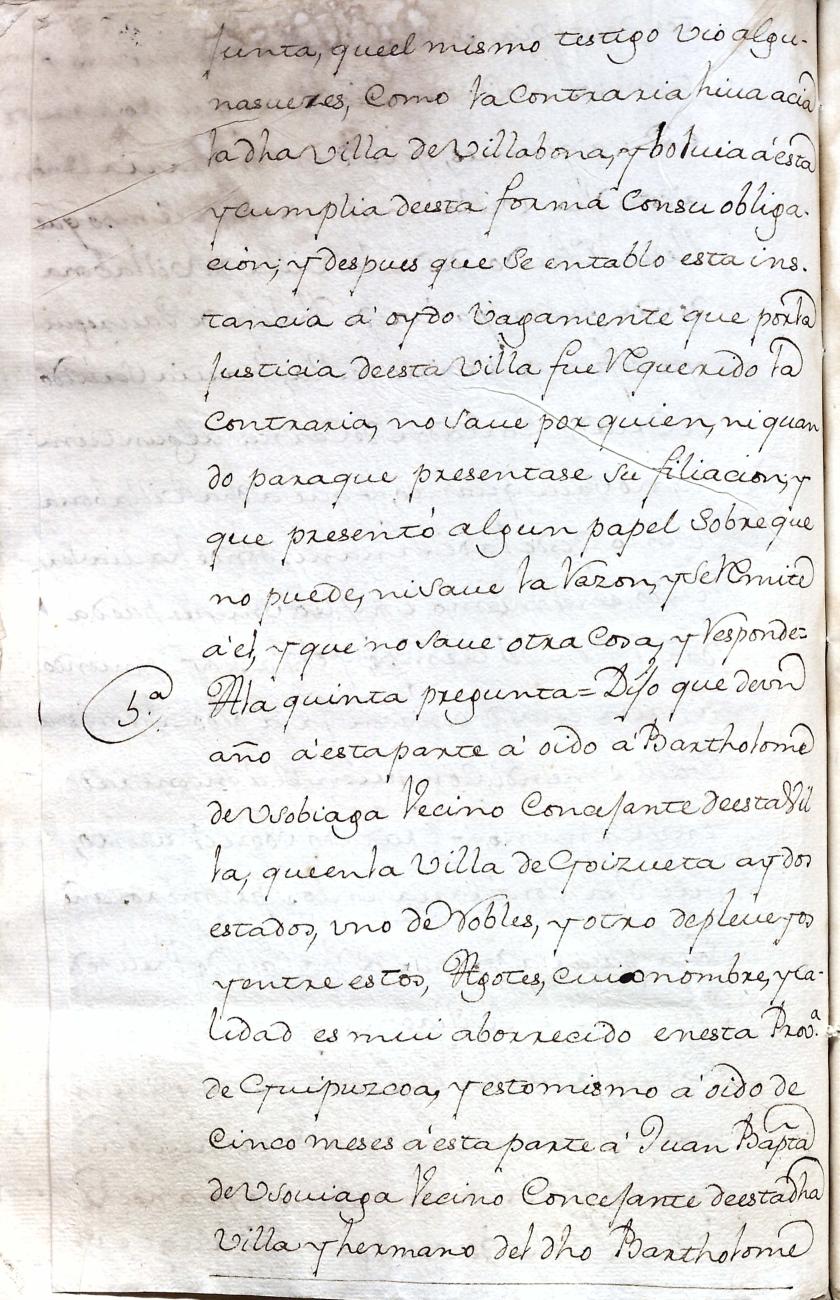 Junta, queel mismo testigo vio algu-
nasuezes, Como la Contraria hiua acia
la dha villa de Villabona, y boluia á ésta
y cumplia deesta forma Consu obliga-
cion; y despues que Se entablo esta ins-
tancia á oydo Vagamente que porla
Justicia deesta Villa fue Requerido la
Contraria, no saue por quien, ni quan
do paraque presentase su filiacion, y
que presentó algun papel Sobreque
no puede, ni saue la Razon, y se Remite
á él, y que no saue otra Cosa, y Responde=
5.ª Ala quinta pregunta= Dijo que deun
año á ésta parte á oido á Bartholome
de Vsobiaga Vecino Concejante deesta Vil
la, queenla Villa de Goizueta ay dos
estados, vno de Nobles, y otro depleueyos
y entre estos, Agotes, cuio nombre, y ca-
lidad es mui aborrecido enesta Prov.ª
de Guipuzcoa, y estomismo á oido de
Cinco meses á ésta parte á Juan Bapta
de Vsouiaga Vecino Concejante deesta dha
Villa y hermano del dho Bartholome